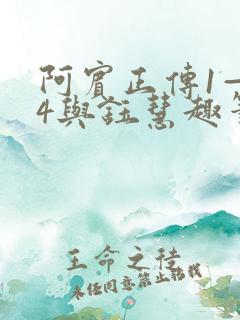 阿賓正傳1—
4與鈺慧趣事
王命之徒
未经同意禁止转载